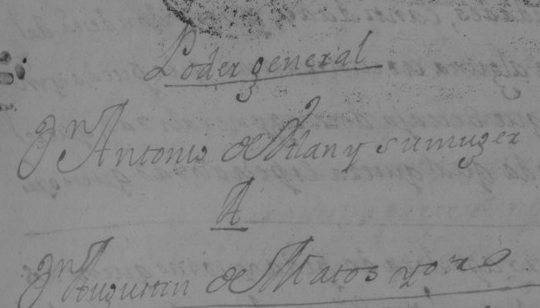 Poder general
Dn Antonio de Ylan y su muger
A
Dn Augustin de Matos